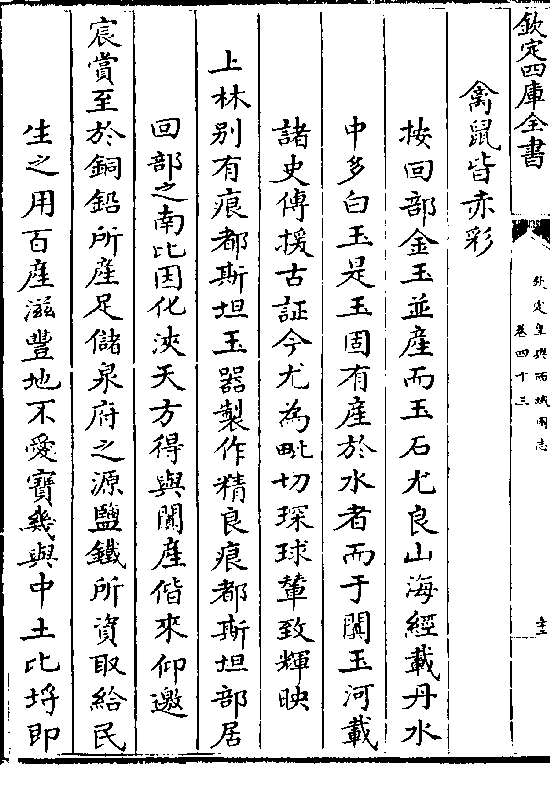 欽定四庫全書
欽定皇輿西域圖志
卷四十三
禽鼠皆赤彩
按回部金玉並産而玉石尤良山海經載丹水
中多白玉是玉固有産於水者而于闐玉河載
諸史傳援古証今尤為毗切琛球輦致輝映
上林别有痕都斯坦玉器製作精良痕都斯坦部居
回部之南比因化浹天方得與闐産偕來仰邀
宸賞至於銅鉛所産足儲泉府之源鹽鐵所資取給民
生之用百産滋豐地不愛寶幾與中土比埒即